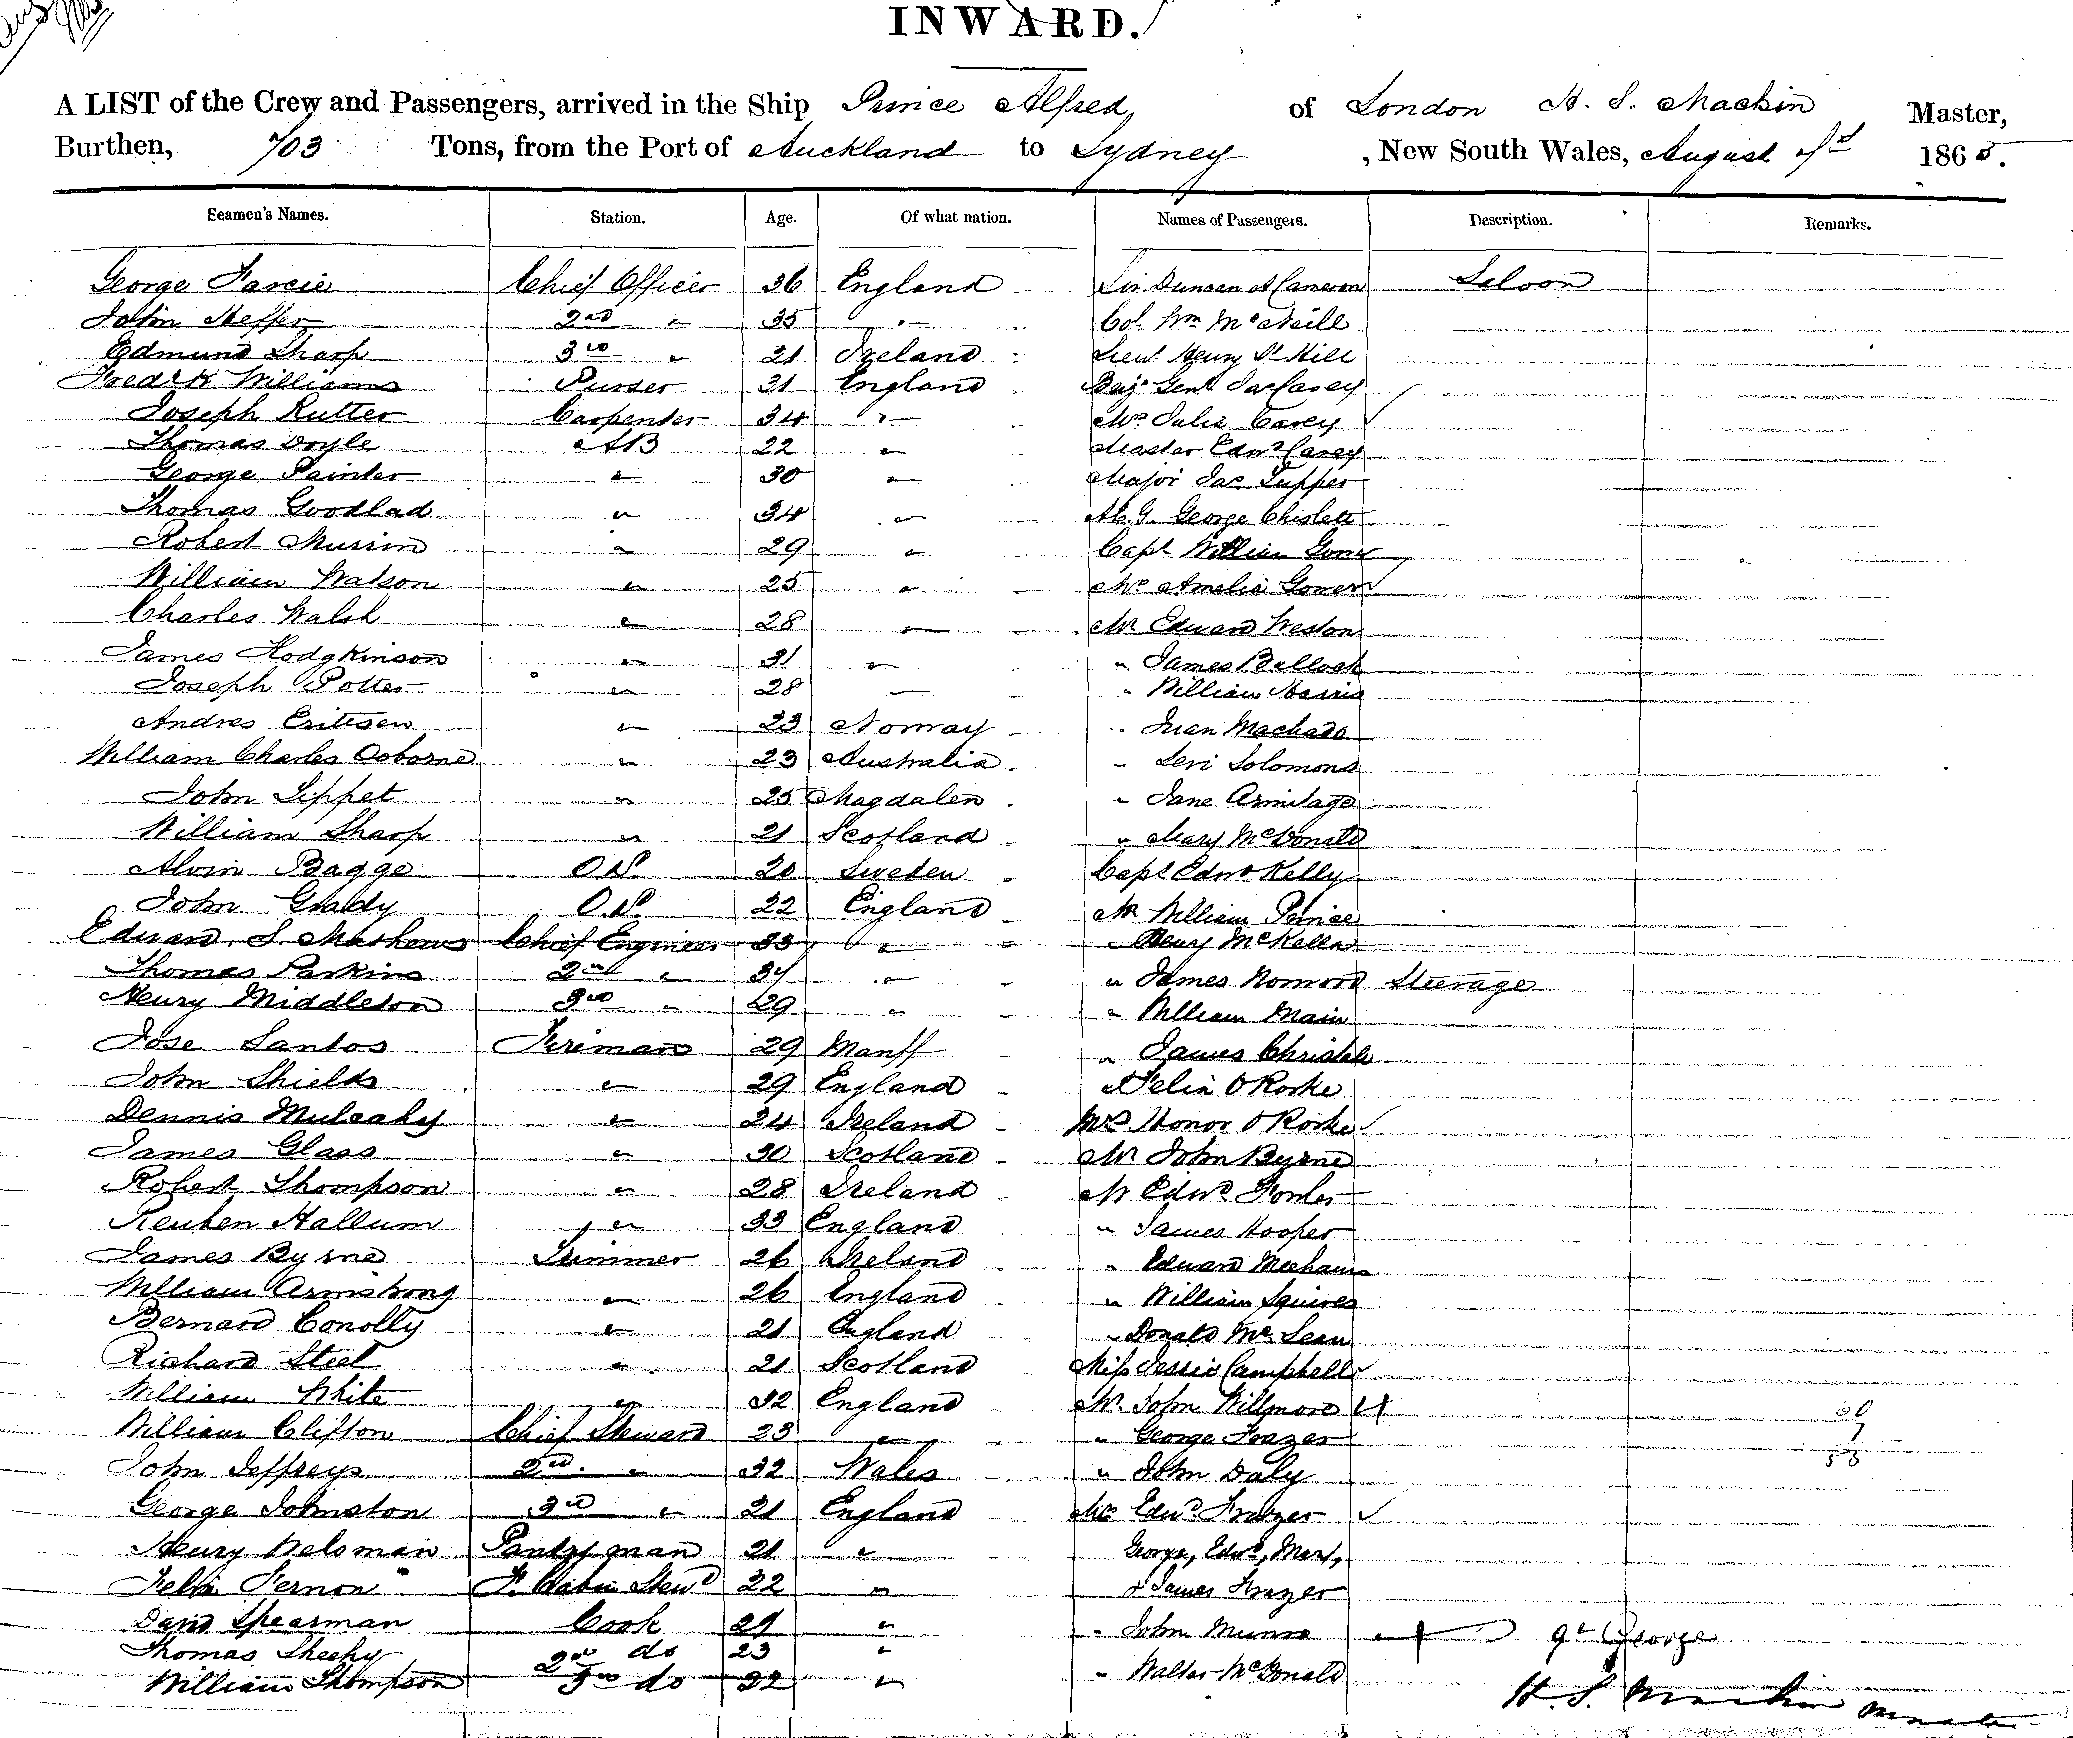 INWARD.
A LIST of the Crew and Passengers, arrived in the Ship Prince Alfred, of London H. S. Machin Master,
Burthen, 703 Tons, from the Port of Auckland to Sydney, New South Wales, August 1865.
Seamen's Names. Station. Age. Of what nation. Names of Passengers. Description. Remarks.
George Chief Officer 36 England Sir Duncan A Cameron Saloon
John 2nd " 35 " Col. Wm McNeill
Edmund Sharp 3rd " 21 Ireland Lieut Henry St Hill
Fredk Williams Purser 31 England Brig. Genl Jas Carey
Joseph Rutter Carpenter 34 " Mrs Julia Carey
Thomas Doyle AB 22 " Master Edwd Carey
George Painter " 30 " Major Jas Tupper
Thomas Goodlad " 34 " George Chislett
Robert " 29 " Capt William Gower
William Watson " 25 " Mrs Amelia Gower
Charles Walsh " 28 " Mr Edward Weston
James Hodgkinson " 31 " " James
Joseph Potter " 28 " " William Harris
Andres " 23 Norway " Juan Machado
William Charles Osborne " 23 Australia " Levi Solomons
John Lippet " 25 Magdalen " Jane Armitage
William Sharp " 21 Scotland " Mary McDonald
Alvin Bagge OS 20 Sweden Capt Edwd Kelly
John Grady OS 22 England Mr William
Edward S. Mathews Chief Engineer 33 " " Henry McKellar
Thomas Parkins 2nd " 37 " " James Steerage
Henry Middleton 3rd " 29 " " William Main
Jose Santos Fireman 29 " James
John Shields " 29 England Felix O Rorke
Dennis Mulcahy " 24 Ireland Mrs Honor O Rorke
James Glass " 30 Scotland Mr John Byrne
Robert Thompson " 28 Ireland Mr Edwd Fowler
Reuben Hallum " 33 England " James Hooper
James Byrne Trimmer 26 Ireland " Edward
William Armstrong " 26 England " William Squires
Bernard Conolly " 21 England " Donald McLean
Richard Steel " 21 Scotland Miss Jessie Campbell
William White " 32 England Mr. John Willmore
William Clifton Chief Steward 23 " " George Frazer
John Jeffreys 2nd " 32 Wales " John Daly
George Johnston 3rd " 21 England Mrs Edwd Frazer
Henry Welsman Pantryman 21 " George, Edwd, Mary,
Felix Vernon F. Cabin Stewd 22 " & James Frazer
David Spearman Cook 29 " " John Munro George
Thomas Sheehy 2nd do 23 "
William Thompson 3rd do 32 " " Walter McDonald
H. S. Machin Master